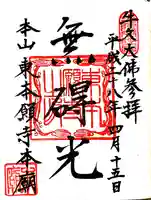 牛久大佛参拝
平成十八年四月十五日
無碍光
本山東本願寺本願